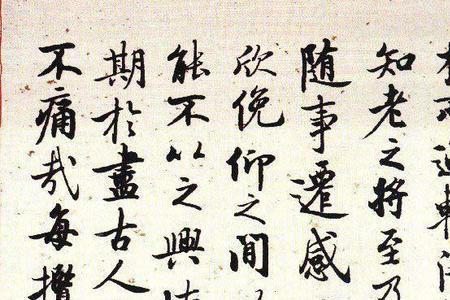 知老之將至及
随事遷感
欣俛仰之間
能不以之興
期於盡古人
不痛哉每攬